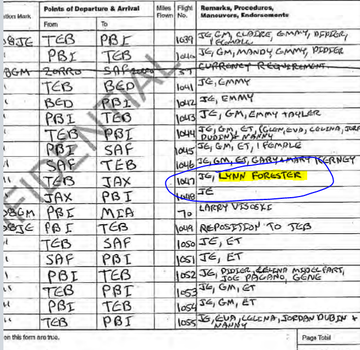 ication Mark Points of Departure & Arrival Miles Flown Flight No. Remarks, Procedures, Maneuvers, Endorsements
From To
08JE TEB PBI 1039 JE, GM, CLAIRE, EMMY, DIDIER, 1 FEMALE
" PBI TEB JE, GM, MANDY EMMY, DIDIER
BGM ZORRO SAF 57 CURRENCY REQUIREMENT
" TEB BED 1041 JE, EMMY
" BED PBI 1042 JE, EMMY
" PBI TEB 1043 JE, GM, EMMY TAYLER
" TEB PBI 1044 JE, GM, ET, GLEN, EVA, CELINA, JORDAN DUBIN + NANNY
" PBI SAF 1045 JE, GM, ET, 1 FEMALE
" SAF TEB 1046 JE, GM, ET, GARY + MARY KERNEY
" TEB JAX 1047 JE, LYNN FORESTER
" JAX PBI 1048 JE
08GM PBI MIA 70 LARRY VISOSKI
08JE PBI TEB 1049 REPOSITION TO TEB
" TEB SAF 1050 JE, ET
" SAF PBI 1051 JE, ET
" PBI TEB 1052 JE, DIDIER, CELINA MIDELFART, JOE PAGANO, GENE
" TEB PBI 1053 JE, GM, ET
" PBI TEB 1054 JE, GM, ET
" TEB PBI 1055 JE, EVA, CELINA, JORDAN DUBIN + NANNY
on this form are true. Page Total
FIDENTIAL